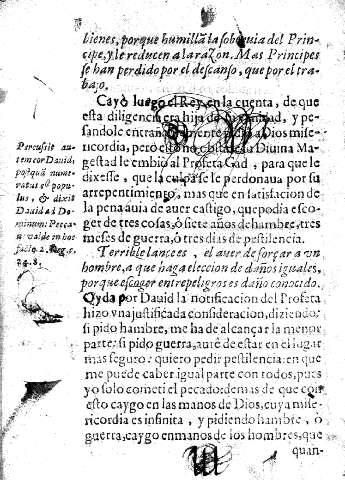 bienes, porque humillā la soberuia del Prin-
cipe, y le reducen a la razon. Mas Principes
se han perdido por el descanso, que por el tra-
bajo.
Cayò luego el Rey, en la cuenta, de que
esta diligencia era hija de vanidad, y pe-
sandole entrañablemente pidio a Dios mise-
ricordia, pero esto no obstante la Diuina Ma-
gestad le embiò al Profeta Gad, para que le
dixesse, que la culpa se le perdonaua por su
arrepentimiento, mas que en satisfacion de
la pena auia de auer castigo, que podia esco-
ger de tres cosas, ò siete años de hambre, tres
meses de guerra, ò tres dias de pestilencia.
Terrible lance es, el auer de forçar a vn
hombre, a que haga eleccion de daños iguales,
porque escoger entre peligros es daño conocido.
Oyda por Dauid la notificacion del Profeta
hizo vna justificada consideracion, diziendo:
si pido hambre, me ha de alcançar la menor
parte: si pido guerra, aurè de estar en el lugar
mas seguro: quiero pedir pestilencia: en que
me puede caber igual parte con todos, pues
yo solo cometi el pecado: demas de que con
esto caygo en las manos de Dios, cuya mise-
ricordia es infinita, y pidiendo hambre, ò
guerra, caygo en manos de los hombres, que
quan-
Percussit au-
tem cor Dauid,
postquā nume-
ratus est popu-
lus, & dixit
Dauid ad Do-
minum: Pecca-
ui valde in hoc
facto. 2. Reg. c.
24. 8.